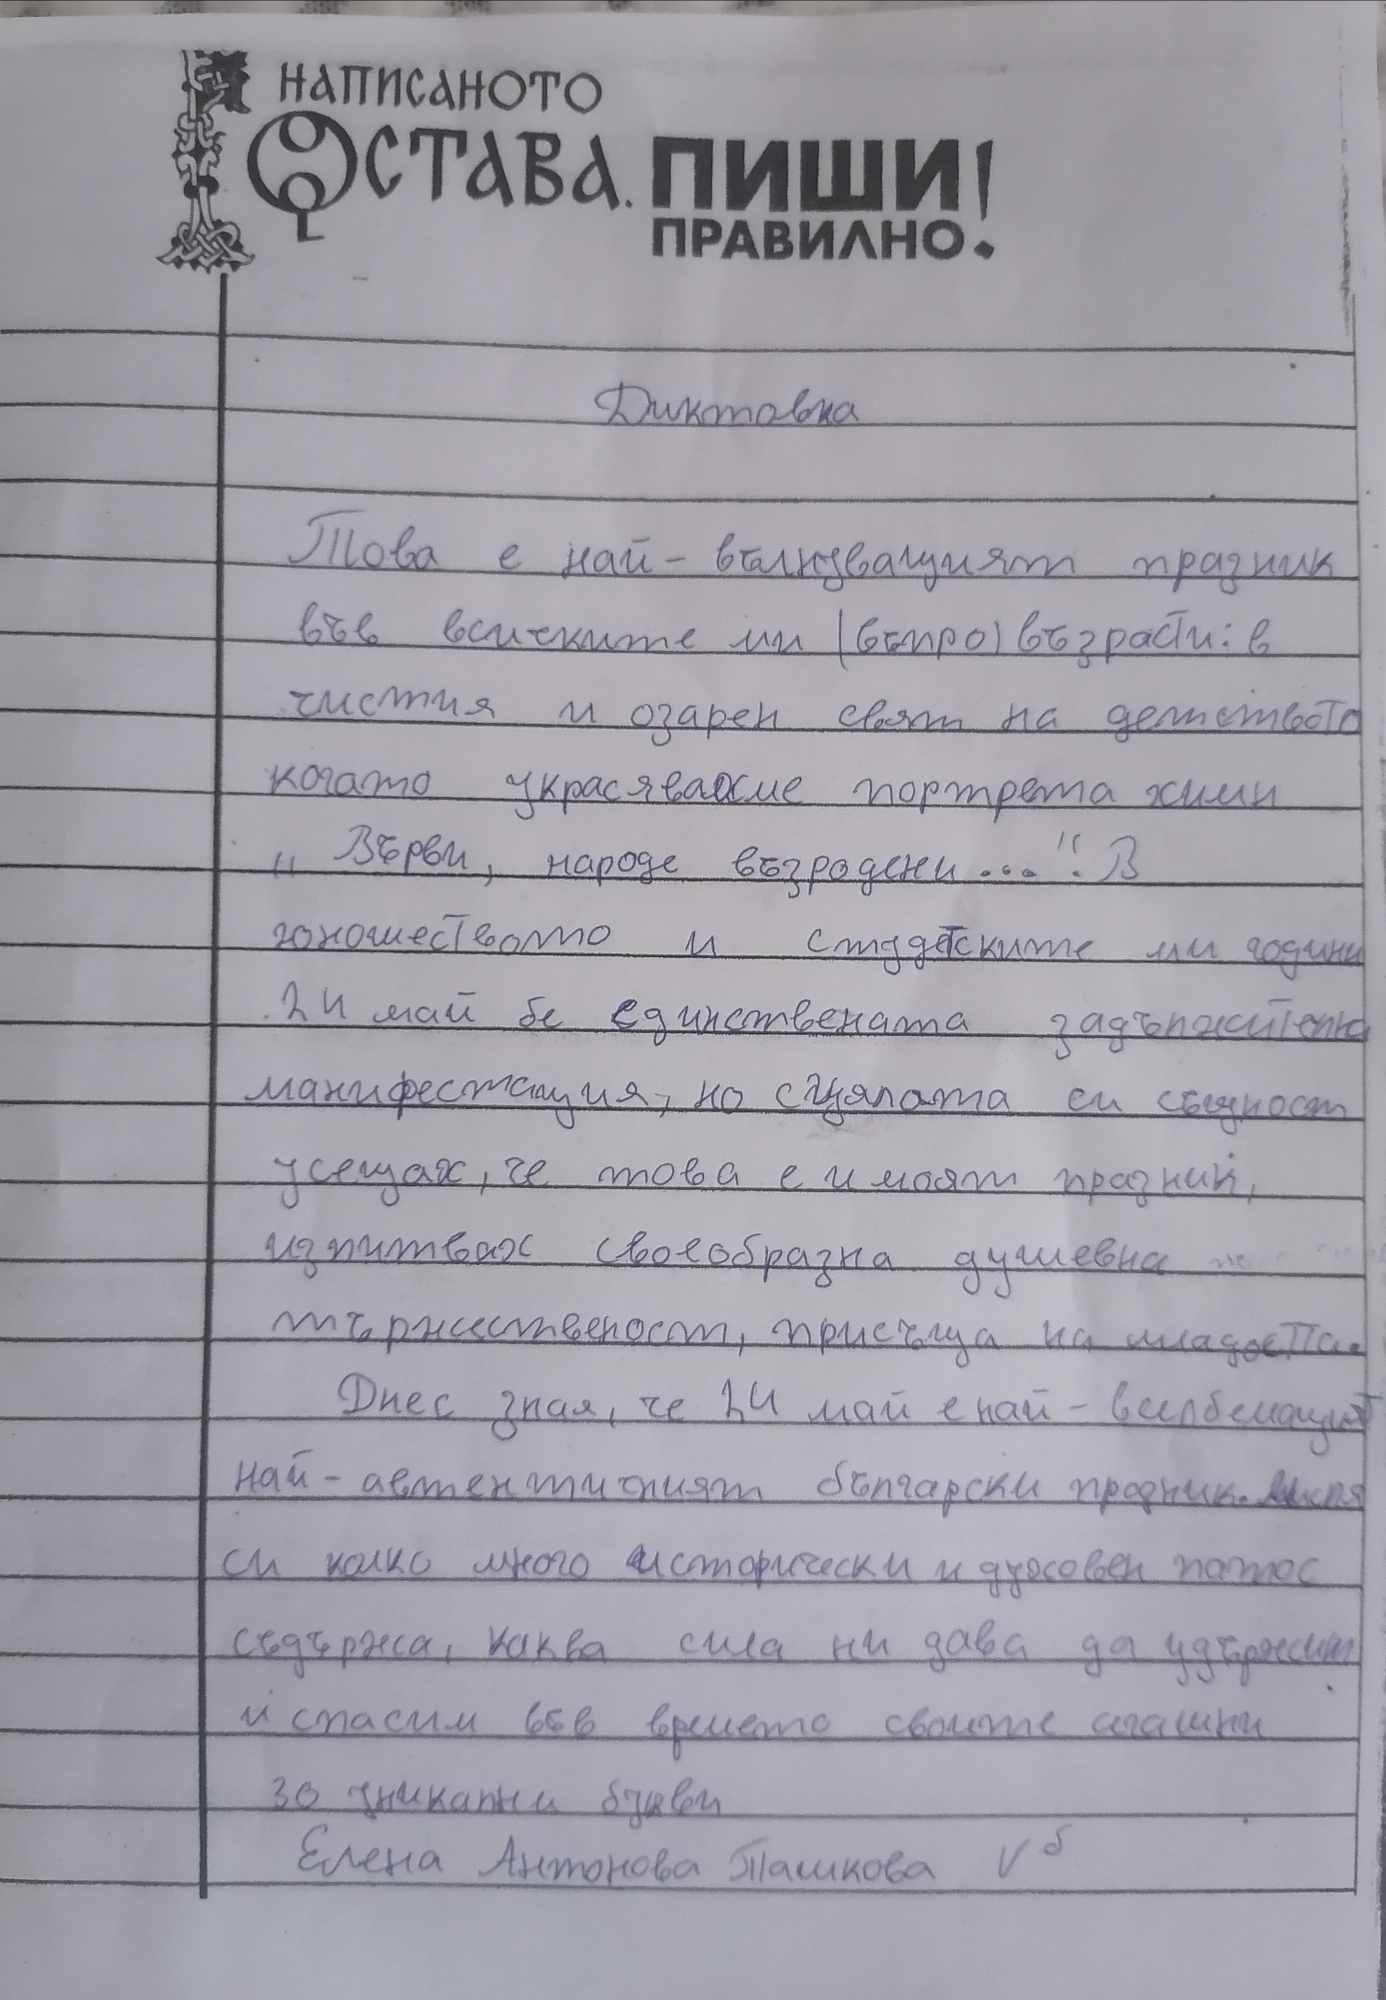 НАПИСАНОТО
ОСТАВА. ПИШИ!
ПРАВИЛНО.
Диктовка
Това е най-вълнуващият празник
във всичките ми (въпро) възрасти: в
чистия и озарен свят на детството
когато украсявахме портрета химн
„Върви, народе възродени...". В
юношеството и студетските ми години
24 май бе единствената
манифестация, но с цялата си същност
усещах, че това е и моят празник,
изпитвах своеобразна душевна
тържественост, присъща на младостта.
Днес зная, че 24 май е най-
най-автентичният български празник. Мисля
си колко много исторически и духовен патос
съдържа, каква сила ни дава да удържим
и спасим във времето своите
30 уникални букви
Елена Антонова Ташкова V б